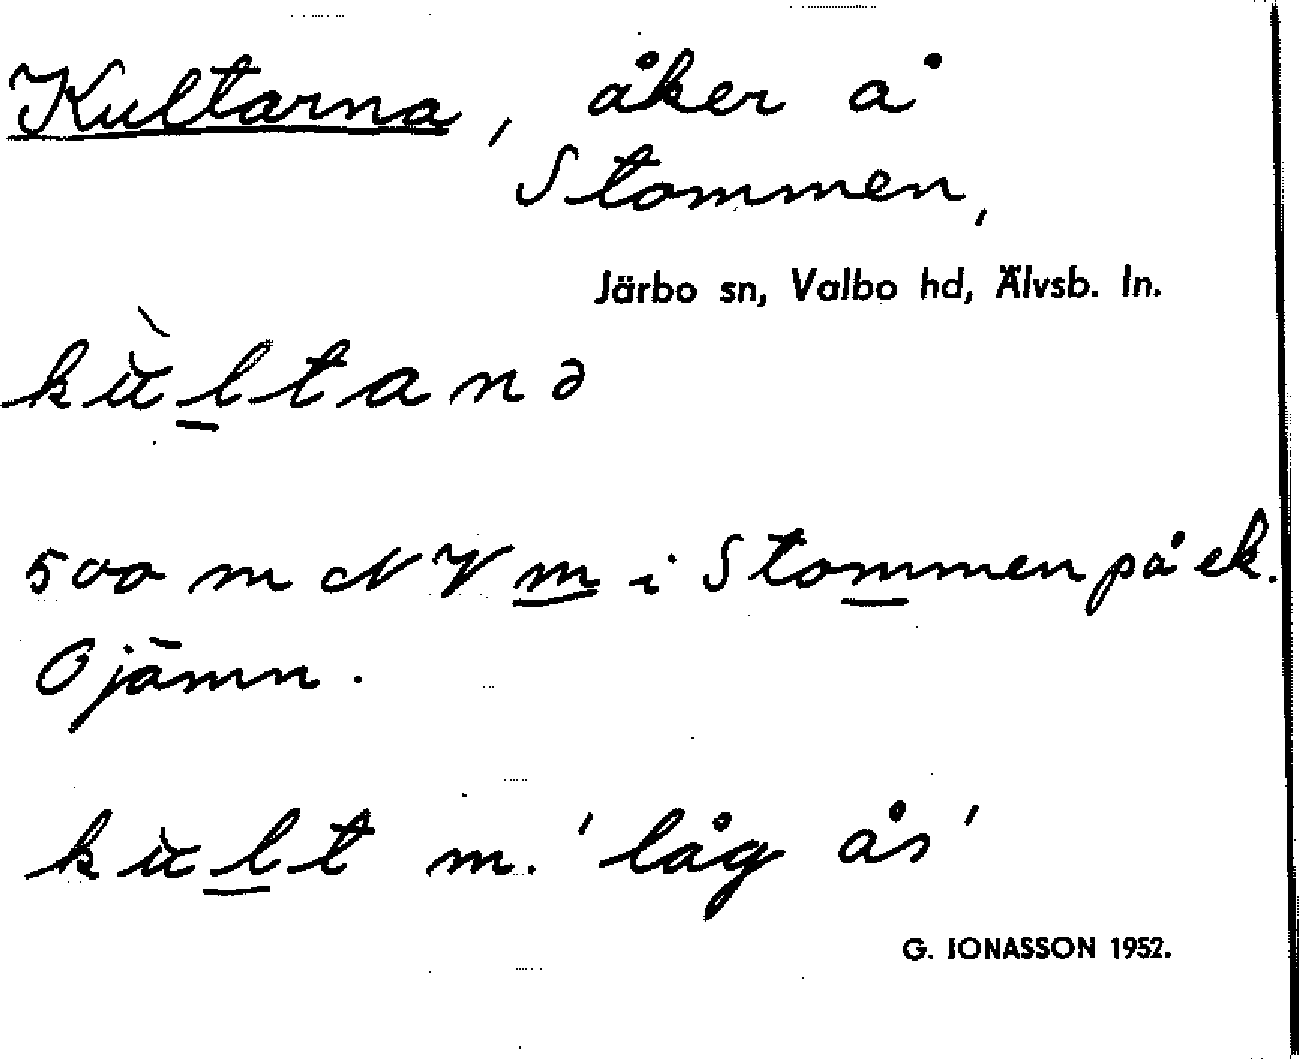 Kultarna, åker å
Stommen,
Järbo sn, Valbo hd, Älvsb. ln.
kùltanə
500 m NV m i Stommen på ek.
Ojämn.
kùlt m. 'låg ås'
G. JONASSON 1952.